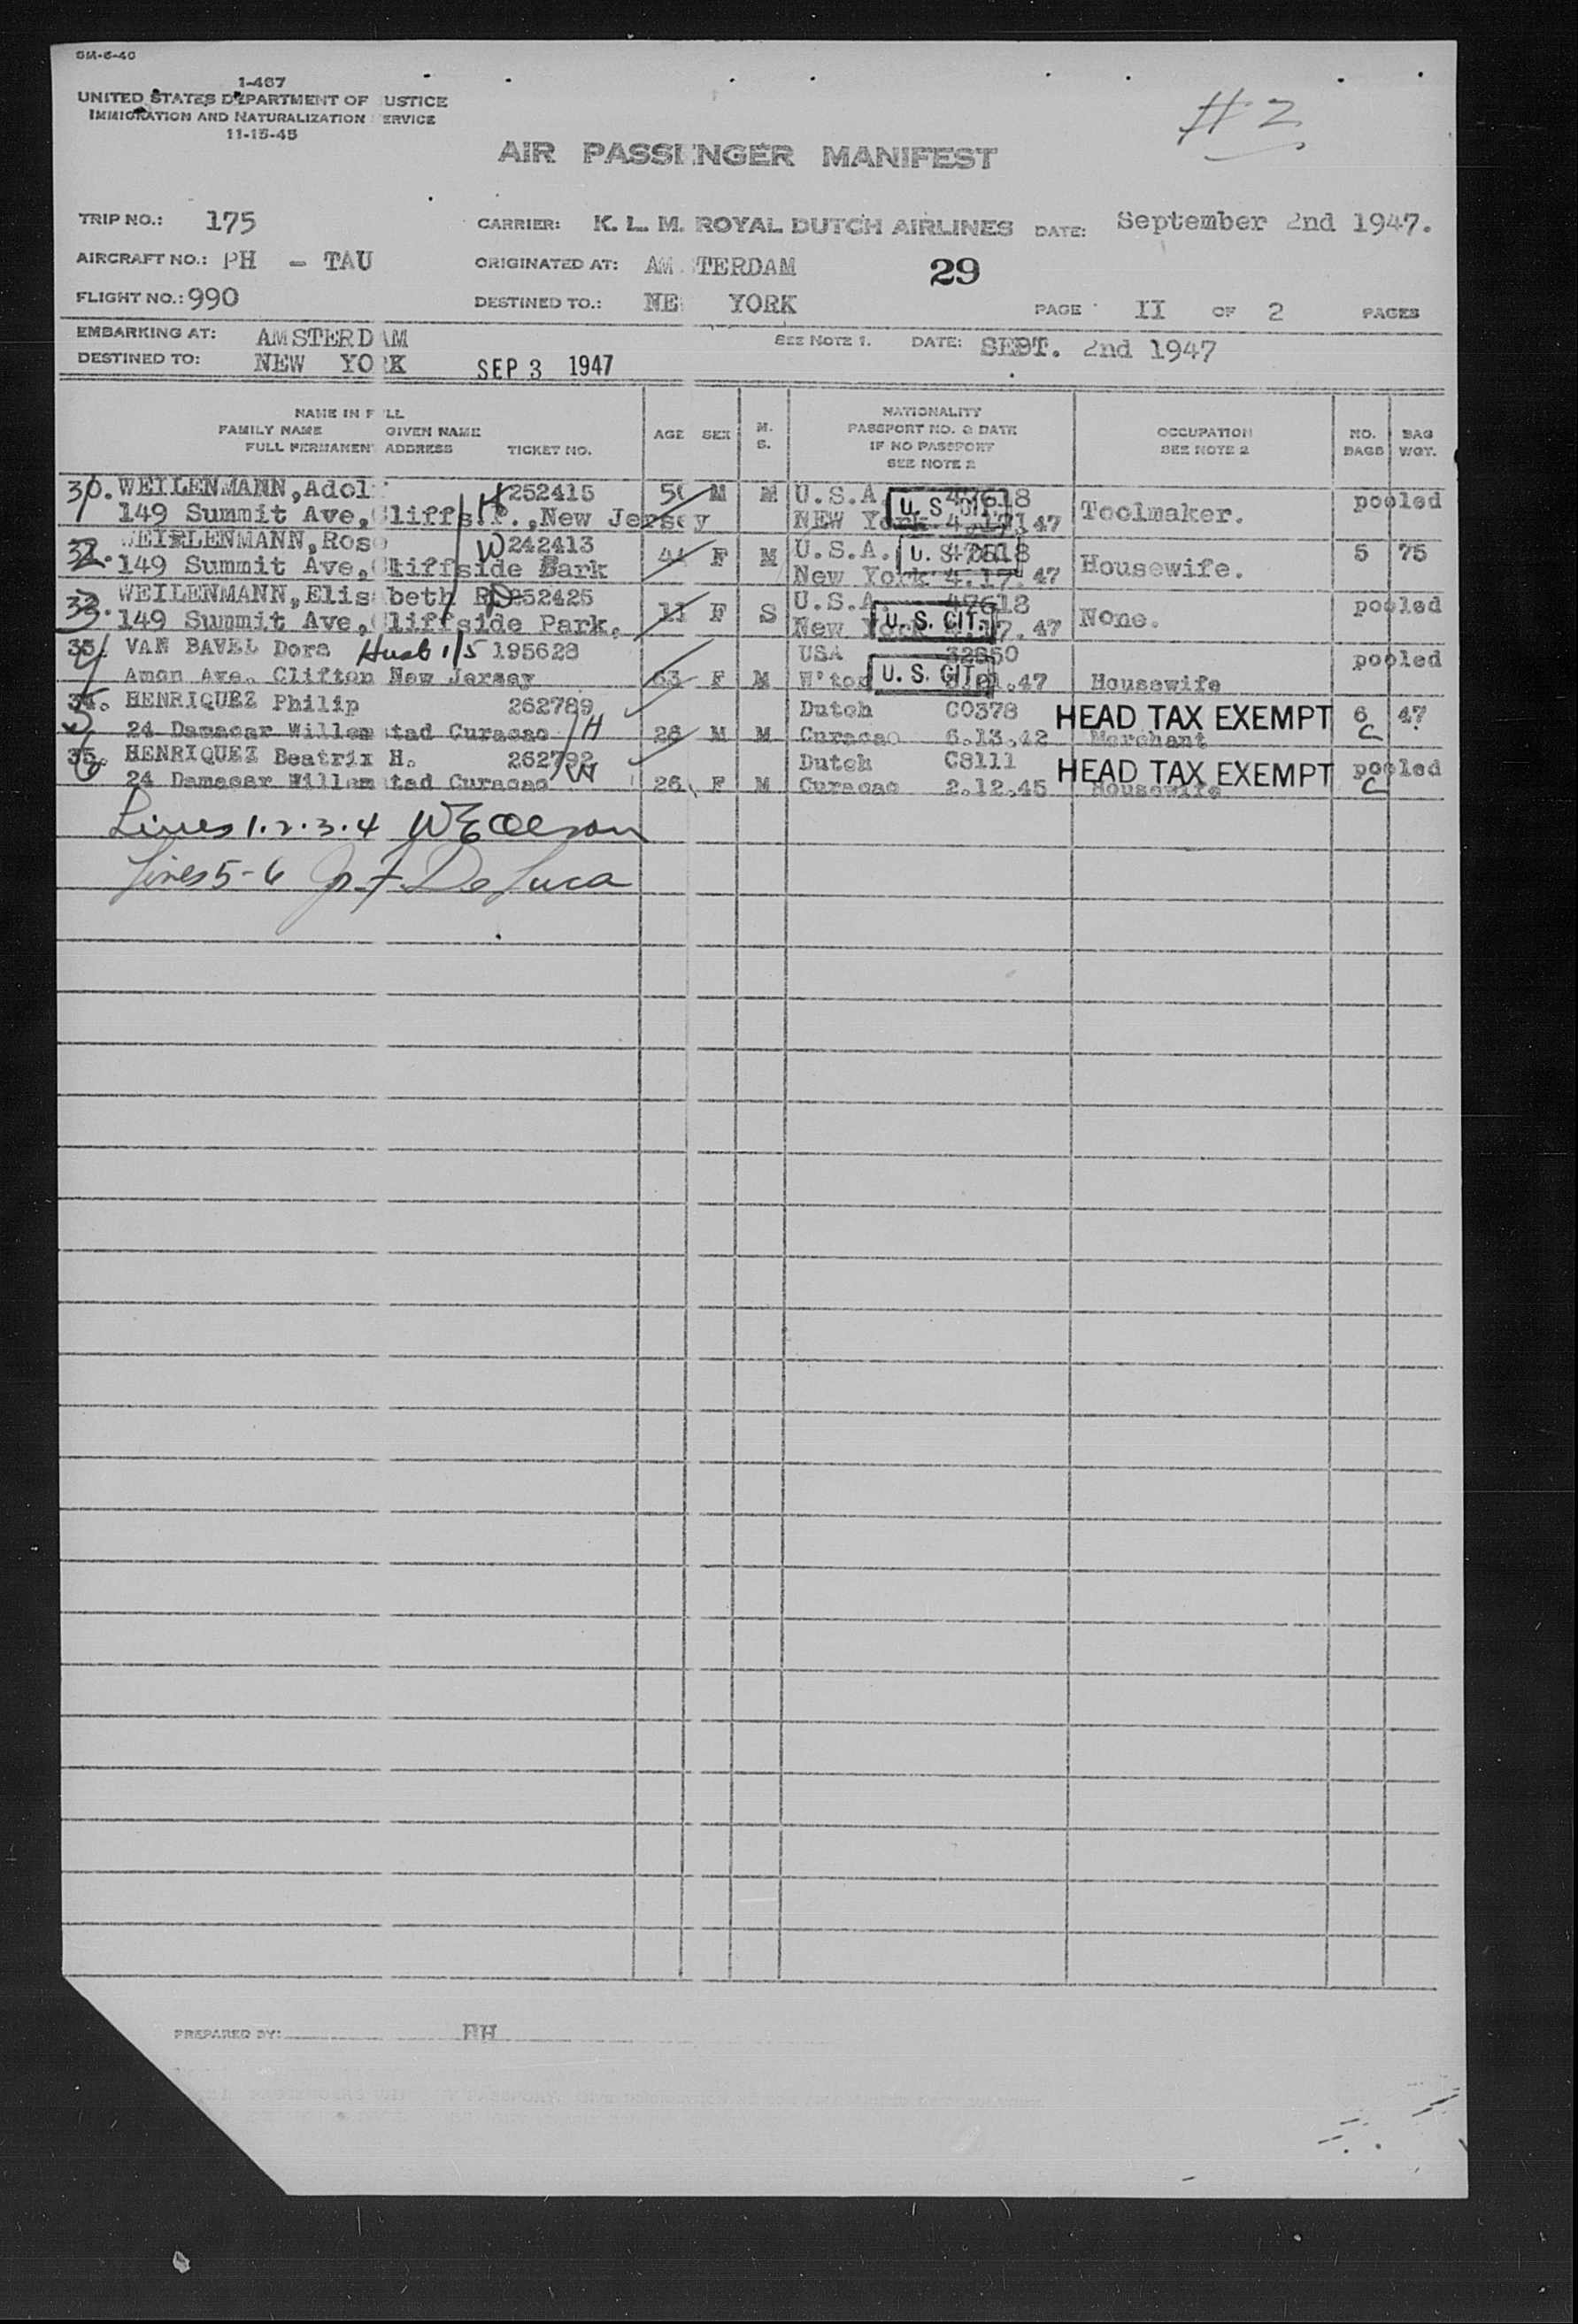 GM-6-46
1-467
UNITED STATES DEPARTMENT OF USTICE
IMMIGRATION AND NATURALIZATION ERVICE
11-15-45
#2
AIR PASSENGER MANIFEST
TRIP NO.: 175 CARRIER: K. L. M. ROYAL DUTCH AIRLINES DATE: September 2nd 1947.
AIRCRAFT NO.: PH - TAU ORIGINATED AT: AM TERDAM 29
FLIGHT NO.: 990 DESTINED TO.: NE YORK PAGE II OF 2 PAGES
EMBARKING AT: AMSTERDAM SEE NOTE 1. DATE: SEPT. 2nd 1947
DESTINED TO: NEW YORK SEP 3 1947
NAME IN F LL
FAMILY NAME GIVEN NAME
FULL PERMANEN ADDRESS TICKET NO. AGE SEX M. S. NATIONALITY PASSPORT NO. & DATE IF NO PASSPORT SEE NOTE 2 OCCUPATION SEE NOTE 2 NO. BAGS BAG WGT.
WEILENMANN, Adol H 252415 M M U.S.A. U. S. CIT. pooled
149 Summit Ave, Cliffs.P., New Jersey NEW York 4.17.47 Toolmaker.
WEIRLENMANN, Ros W 242413 44 F M U.S.A. U. S. CIT. 5 75
149 Summit Ave, Cliffside Bark New York 4.17.47 Housewife.
33. WEILENMANN, Elis beth 252425 11 F S U.S.A. 47618 pooled
149 Summit Ave, Cliffside Park, New York U. S. CIT. 47 None.
VAN BAVEL Dora Husb 1/5 195628 USA 32850 pooled
Amon Ave. Clifton New Jersey 63 F M W'ton U. S. CIT. .47 Housewife
HENRIQUEZ Philip 262789 Dutch C0378 HEAD TAX EXEMPT 6 47
24 Damacar Willem stad Curacao H 26 M M Curacao 6.13.42 Merchant C
HENRIQUEZ Beatrix H. 262792 Dutch C8111 HEAD TAX EXEMPT pooled
24 Damacar Willem stad Curacao W 26 F M Curacao 2.12.45 Housewife C
Lines 1.2.3.4 WE Olson
Lines 5-6 De Luca
PREPARED BY: HH